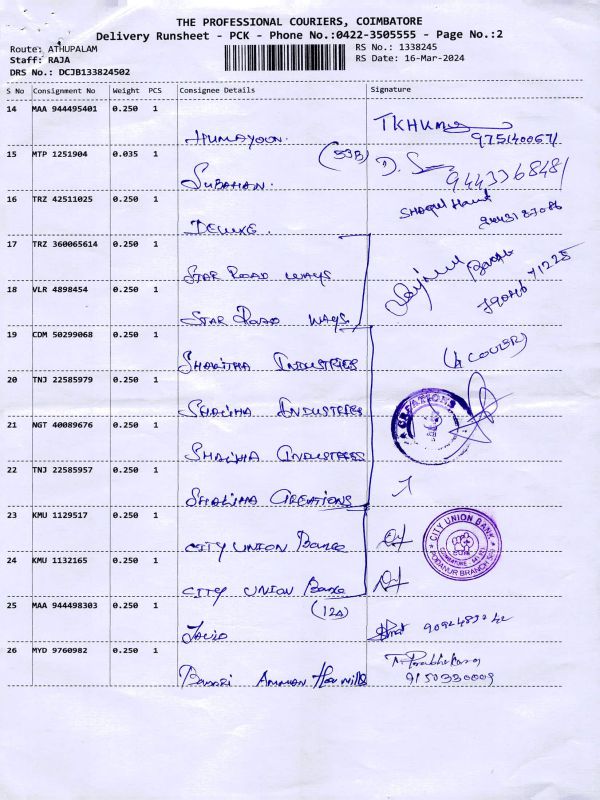 THE PROFESSIONAL COURIERS, COIMBATORE
Delivery Runsheet - PCK - Phone No.:0422-3505555 - Page No.:2
Route: ATHUPALAM
RS No.: 1338245
Staff: RAJA
RS Date: 16-Mar-2024
DRS No.: DCJB133824502
S No Consignment No Weight PCS Consignee Details Signature
14 MAA 944495401 0.250 1
HUMAYOON.
15 MTP 1251904 0.035 1 (53B)
SUBAHAN.
16 TRZ 42511025 0.250 1
DELUXE.
17 TRZ 360065614 0.250 1
STAR ROAD WAYS
18 VLR 4898454 0.250 1
STAR ROAD WAYS.
19 CDM 50299068 0.250 1
INDUSTRIES
(4 COVER)
20 TNJ 22585979 0.250 1
SHALIHA INDUSTRIES
CREATIONS
21 NGT 40089676 0.250 1
SHALIHA INDUSTRIES
22 TNJ 22585957 0.250 1
SHALIHA CREATIONS
23 KMU 1129517 0.250 1
CITY UNION
CITY UNION BANK
PODANUR BRANCH
24 KMU 1132165 0.250 1
CITY UNION
25 MAA 944498303 0.250 1 (12A)
26 MYD 9760982 0.250 1
9150330009